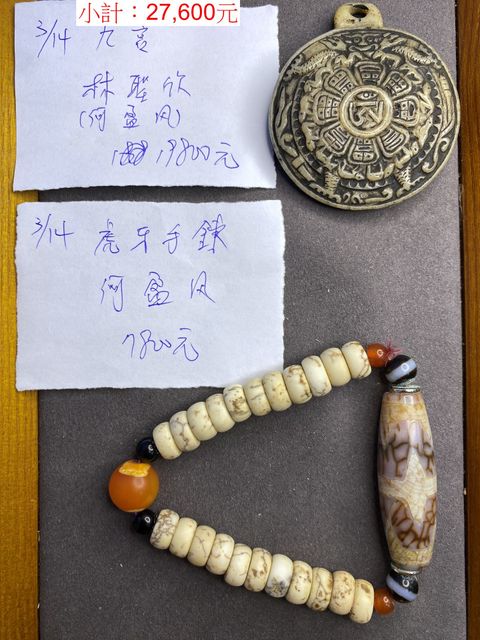 小計：27,600元
3/14 九宮
林聖欣
(何盈風)
19800元
3/14 虎牙手鍊
何盈风
7800元